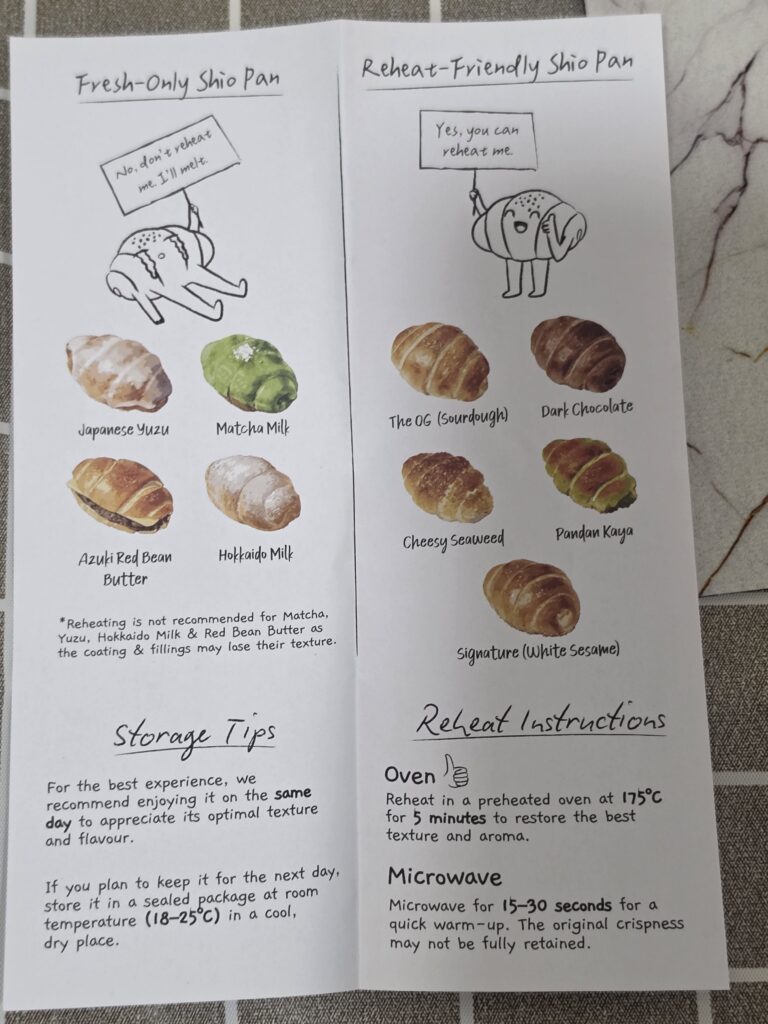 Fresh-Only Shio Pan
No, don't reheat
me. I'll melt.
Japanese Yuzu
Matcha Milk
Azuki Red Bean
Butter
Hokkaido Milk
*Reheating is not recommended for Matcha,
Yuzu, Hokkaido Milk & Red Bean Butter as
the coating & fillings may lose their texture.
Storage Tips
For the best experience, we
recommend enjoying it on the same
day to appreciate its optimal texture
and flavour.
If you plan to keep it for the next day,
store it in a sealed package at room
temperature (18–25°C) in a cool,
dry place.
Reheat-Friendly Shio Pan
Yes, you can
reheat me.
The OG (Sourdough)
Dark Chocolate
Cheesy Seaweed
Pandan Kaya
Signature (White Sesame)
Reheat Instructions
Oven
Reheat in a preheated oven at 175°C
for 5 minutes to restore the best
texture and aroma.
Microwave
Microwave for 15–30 seconds for a
quick warm-up. The original crispness
may not be fully retained.